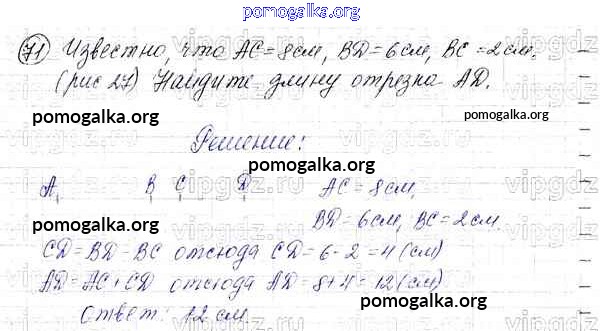 pomogalka.org
71 Известно, что AC = 8см, BD = 6см, BC = 2см.
(рис 27) Найдите длину отрезка AD.
pomogalka.org pomogalka.org
Решение:
vipgdz.ru
pomogalka.org pomogalka.org
A B C D AC = 8см,
pomogalka.org BD = 6см, BC = 2см.
CD = BD - BC отсюда CD = 6 - 2 = 4 (см)
AD = AC + CD отсюда AD = 8 + 4 = 12 (см)
pomogalka.org
Ответ: 12 см
pomogalka.org